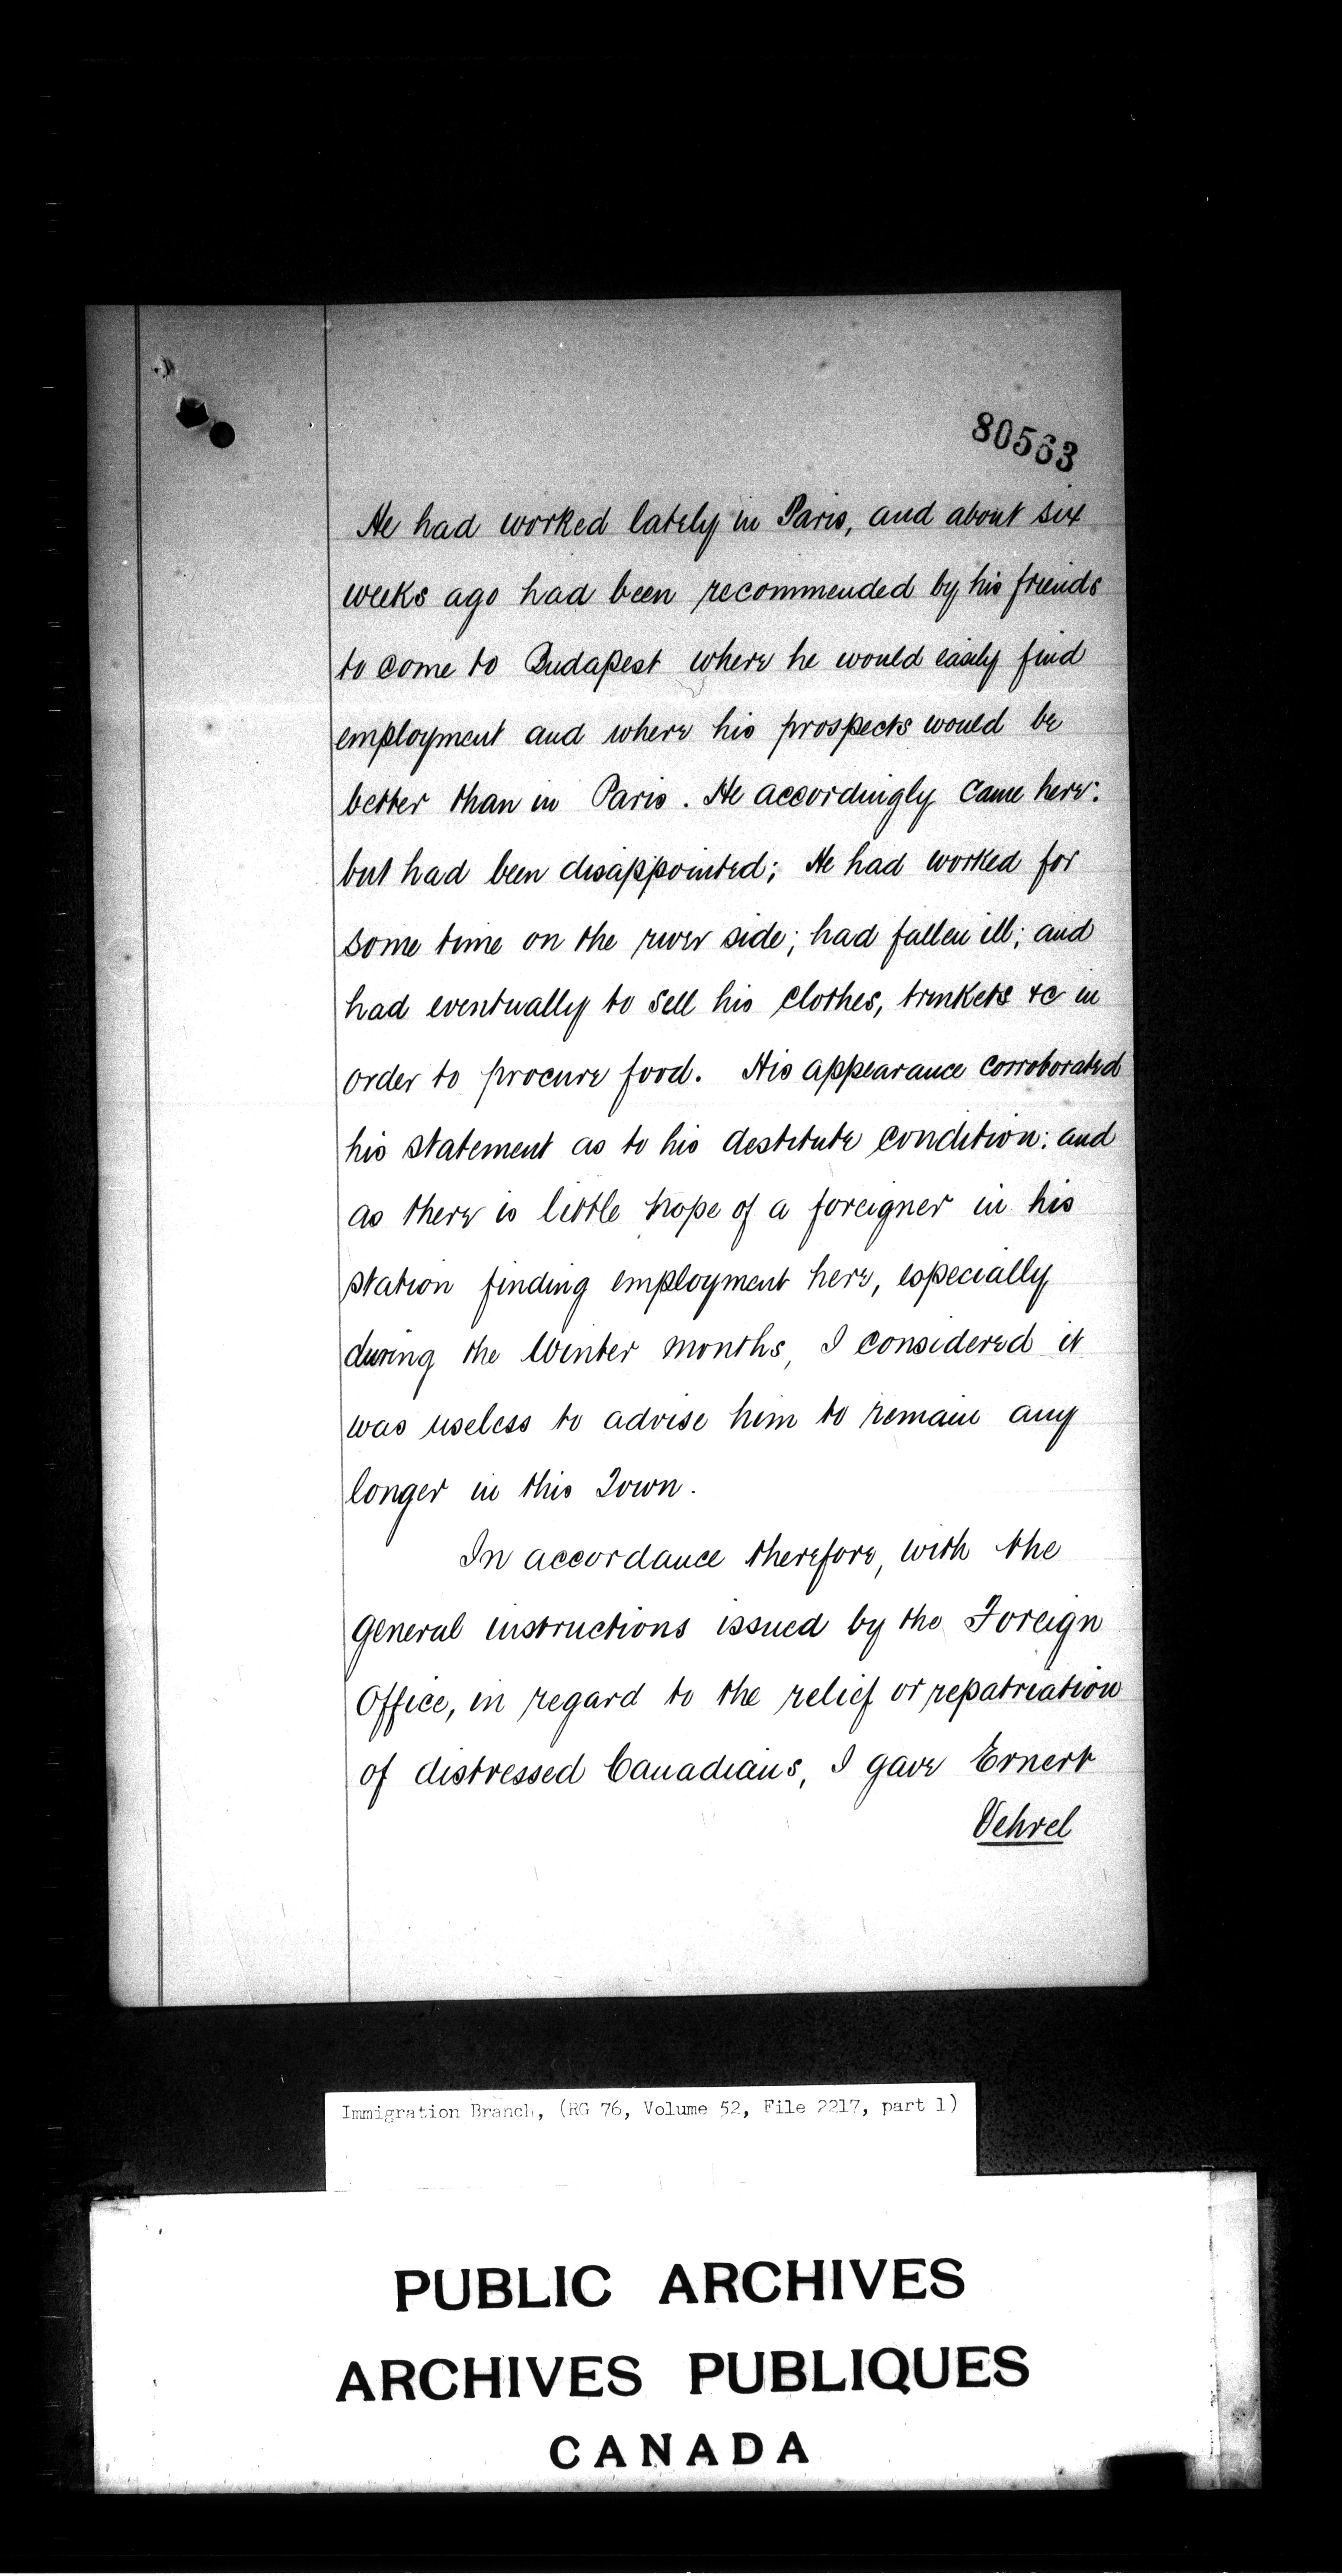 80563
He had worked lately in Paris, and about six
weeks ago had been recommended by his friends
to come to Budapest where he would easily find
employment and where his prospects would be
better than in Paris. He accordingly came here:
but had been disappointed; He had worked for
some time on the river side; had fallen ill; and
had eventually to sell his clothes, trinkets &c in
order to procure food. His appearance corroborated
his statement as to his destitute condition: and
as there is little hope of a foreigner in his
station finding employment here, especially
during the Winter months, I considered it
was useless to advise him to remain any
longer in this Town.
In accordance therefore, with the
General instructions issued by the Foreign
Office, in regard to the relief or repatriation
of distressed Canadians, I gave Ernest
Vehrel
Immigration Branch, (RG 76, Volume 52, File 2217, part 1)
PUBLIC ARCHIVES
ARCHIVES PUBLIQUES
CANADA